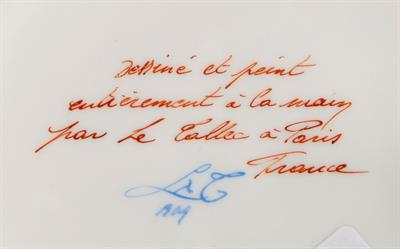 Dessiné et peint
entièrement à la main
par Le Tallec à Paris
France
LeT